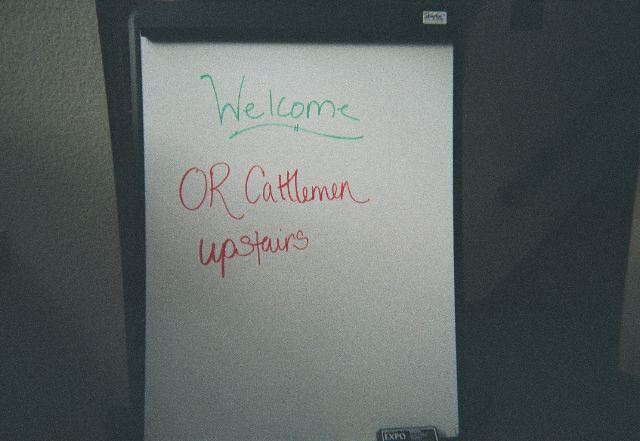 Welcome
OR Cattlemen
upstairs
EXPO